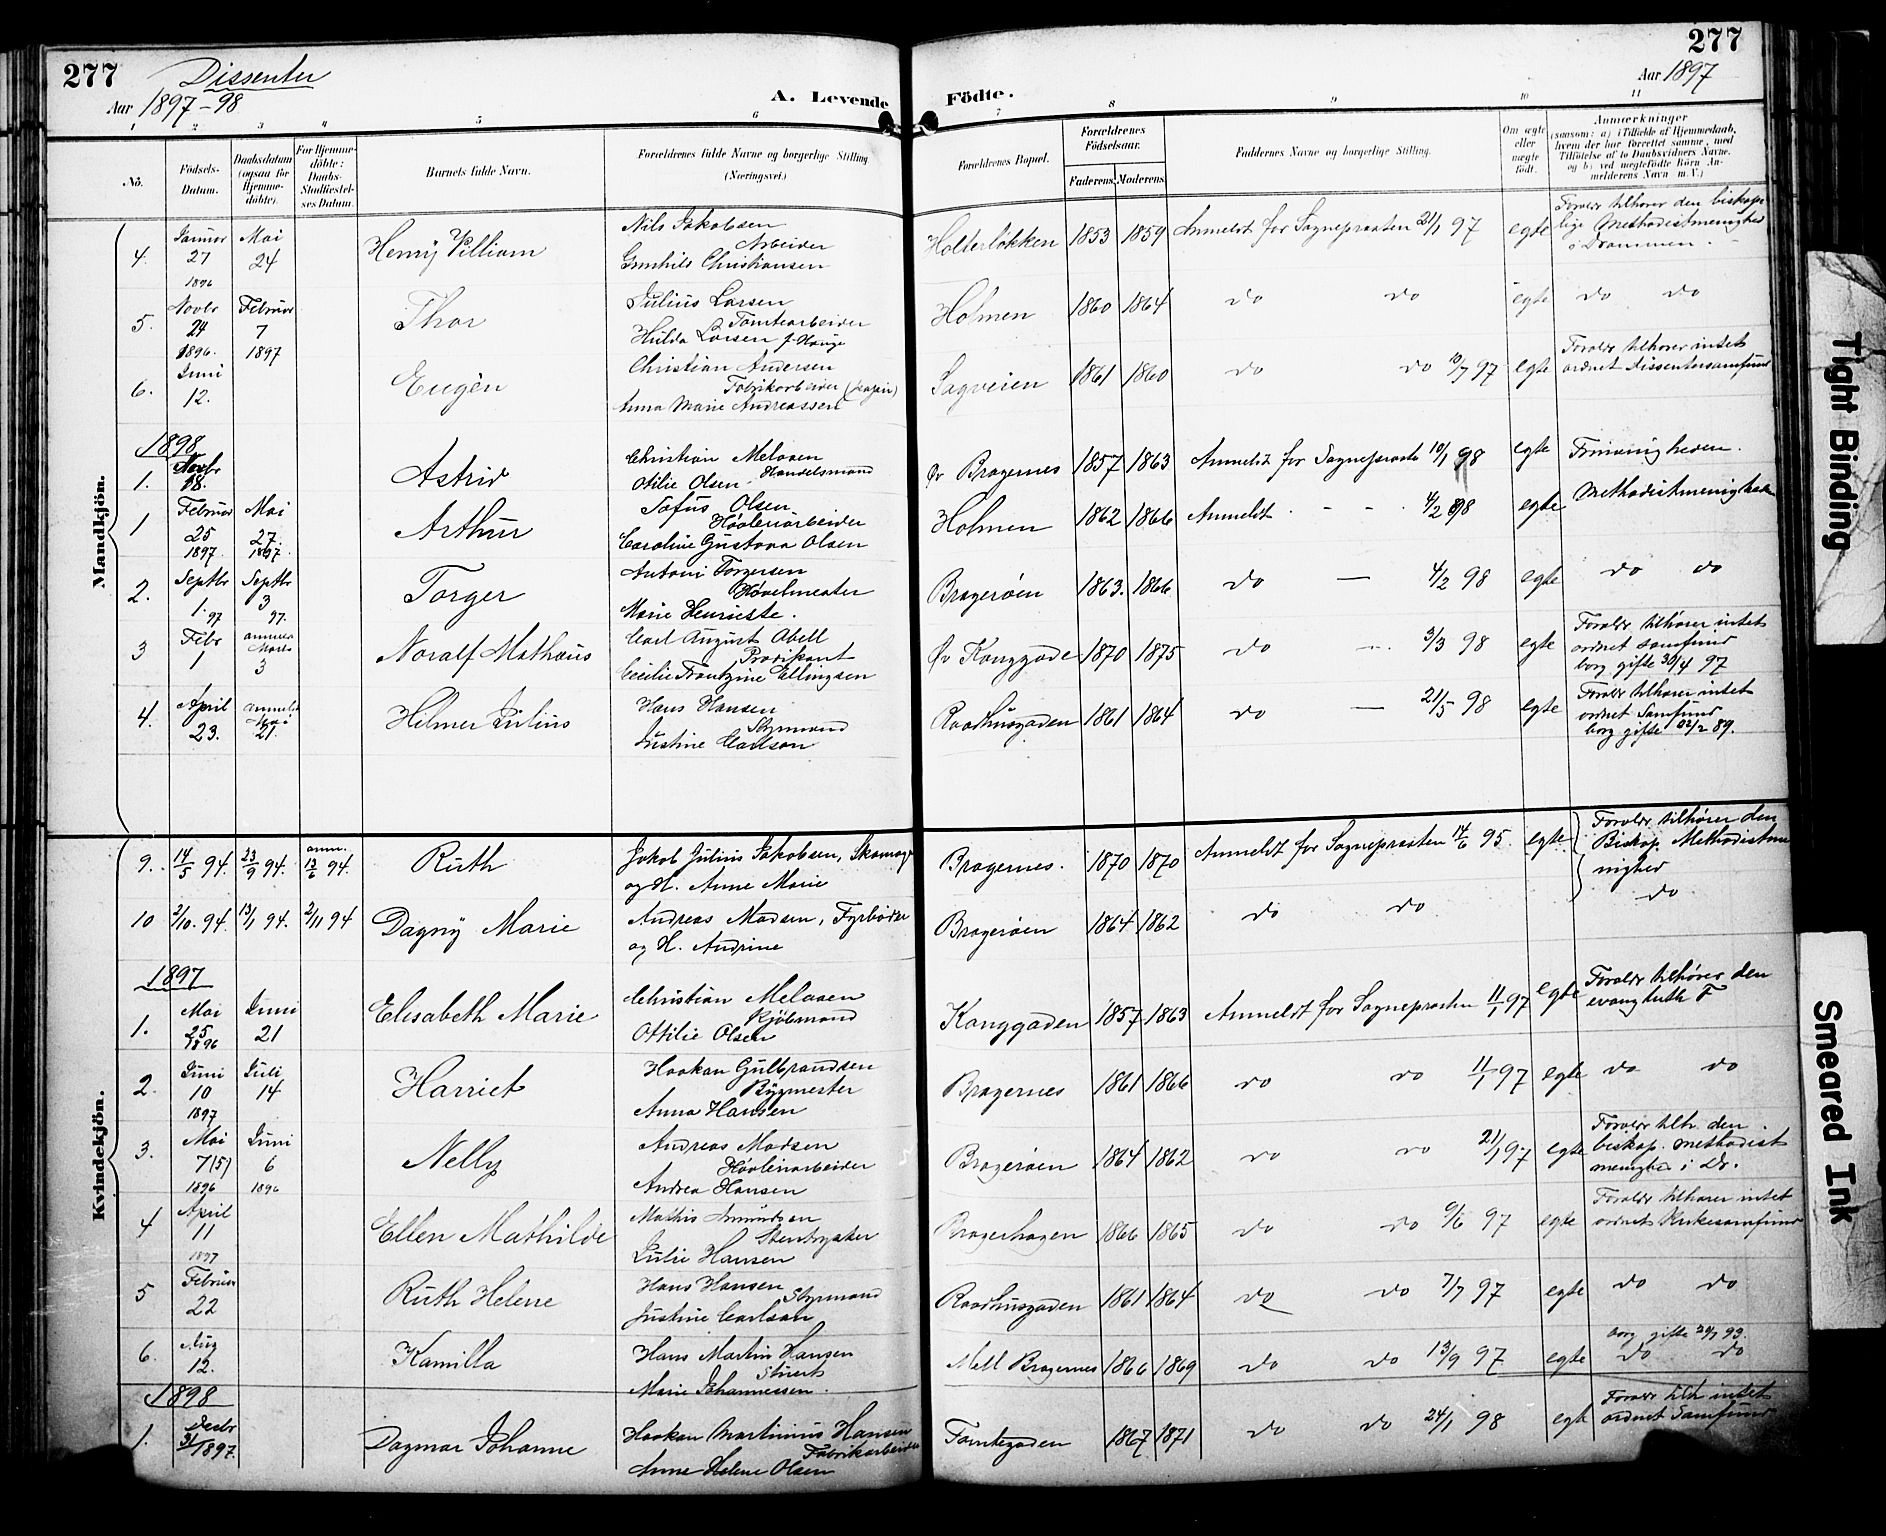 277
Dissenter
Aar 1897-98
A. Levende Fødte.
277
Aar 1897
1 2 3 4 5 6 7 8 9 10 11
No.
Fødsels-Datum.
Daabsdatum (ogsaa for Hjemme-døbte).
For Hjemme-døbte: Daabs-Stadfæstel-ses Datum.
Barnets fulde Navn.
Forældrenes fulde Navne og borgerlige Stilling (Næringsvei.)
Forældrenes Bopæl.
Forældrenes Fødselsaar.
Faderens. Moderens.
Faddernes Navne og borgerlige Stilling.
Om ægte eller uægte født.
Anmærkninger
(saasom: a) i Tilfælde af Hjemmedaab, hvem der har forrettet samme, med Tilføielse af to Daabsvidners Navne, og b) ved uegtefødte Børn An-melderens Navn m. V.)
Mandkjön.
4. Januar 27 1896 Mai 24 Henry William Nils Jakobsen Arbeider Gunhild Christiansen Holterløkken 1853 1859 Anmeldt for Sognepresten 21/1 97 egte Foreldr tilhører den biskope lige Methodistmenighed i Drammen.
5. Novbr 24 1896. Februar 7 1897 Thor Julius Larsen Tomtearbeider Hulda Larsen f. Hauge Holmen 1860 1864 do do egte do do
6. Juni 12. Eugén Christian Andersen Fabrikarbeider Anna Marie Andreassen Sagveien 1861 1860 do do 10/7 97 egte Foreldr tilhører intet ordnet Dissentersamfund
1898
1. Novbr 18. Astrid Christian Melaaen Handelsmand Otilie Olsen Øv Bragernes 1857 1863 Anmeldt for Sogneprest 10/1 98 egte Frimenigheden.
1 Februar 25 1897. Mai 27. 1897. Arthur Sofus Olsen Høvleriarbeider Caroline Gustava Olsen Holmen 1862 1866 Anmeldt - - 4/2 98 egte Methodistmenigheden
2. Septbr 1. 97 Septbr 3 97. Torger Antoni Torgersen Høvelmester Marie Henriette. Bragerøen 1863. 1866 do — 4/2 98 egte do do
3 Febr 1 anmeldt Marts 3 Noralf Mathæus Carl August Abell Prædikant Cecilie Frantzine Ellingsen Øv Konggade 1870 1875 do - 3/3 98 egte Foreldr tilhører intet ordnet samfund borg gifte 30/4 97
4. April 23. anmeldt Mai 21. Hilmer Julius Hans Hansen Styrmand Justine Carlson Raadhusgaden 1861 1864 do — 21/5 98 egte Foreldr tilhører intet ordnet Samfund borg gifte 22/2 89.
Kvindekjön.
9. 14/5 94. 23/9 94. anm. 13/6 94. Ruth Jakob Julius Jakobsen, Skomager og H. Anne Marie Bragernes. 1870 1870 Anmeldt for Sognepresten 14/6 95. egte. Foreldr tilhører den Biskop. Methodistme nighed
10 2/10. 94. 13/1 94. 2/11 94 Dagny Marie Andreas Madsen, Fyrbøder og H. Andrine Bragerøen 1864 1862 do do do
1897
1. Mai 25 1896 Juni 21 Elisabeth Marie Christian Melaaen Kjøbmand Ottilie Olsen Konggaden 1857 1863 Anmeldt for Sognepresten 11/1 97 egte Foreldr tilhører den evang luth F
2. Juni 10 1897 Juli 14 Harriet Haakon Gulbrandsen Bygmester Anna Hansen Bragernes 1861 1866 do do 11/1 97 egte do do
3. Mai 7(5) 1896 Juni 6 1896 Nelly Andreas Madsen Høvleriarbeider Andrea Hansen Bragerøen 1864 1862 do do 21/1 97 egte Foreldr tilh. den biskop. methodist menighed i Dr.
4 April 11 1897 Ellen Mathilde Mathis Amundsen Stentrykker Julie Hansen Bragerhagen 1866 1865 do do 9/6 97 egte Foreldr tilhører intet ordnet Kirkesamfund
5 Februar 22 Ruth Helene Hans Hansen Styrmand Justine Carlson Raadhusgaden 1861 1864 do do 7/7 97 egte do do
6. Aug 12. Kamilla Hans Martin Hansen Stuert Marie Johannessen. Mell Bragernes 1866 1869 do do 13/9 97 egte borg gifte 29/7 93. do do
1898
1. Decbr 31/1897. Dagmar Johanne Haakon Martinius Hansen Fabrikarbeider Anne Helene Olsen Tomtegaden 1867 1871 do do 24/1 98 egte Foreldr tilh intet ordnet Samfund
Tight Binding
Smeared Ink